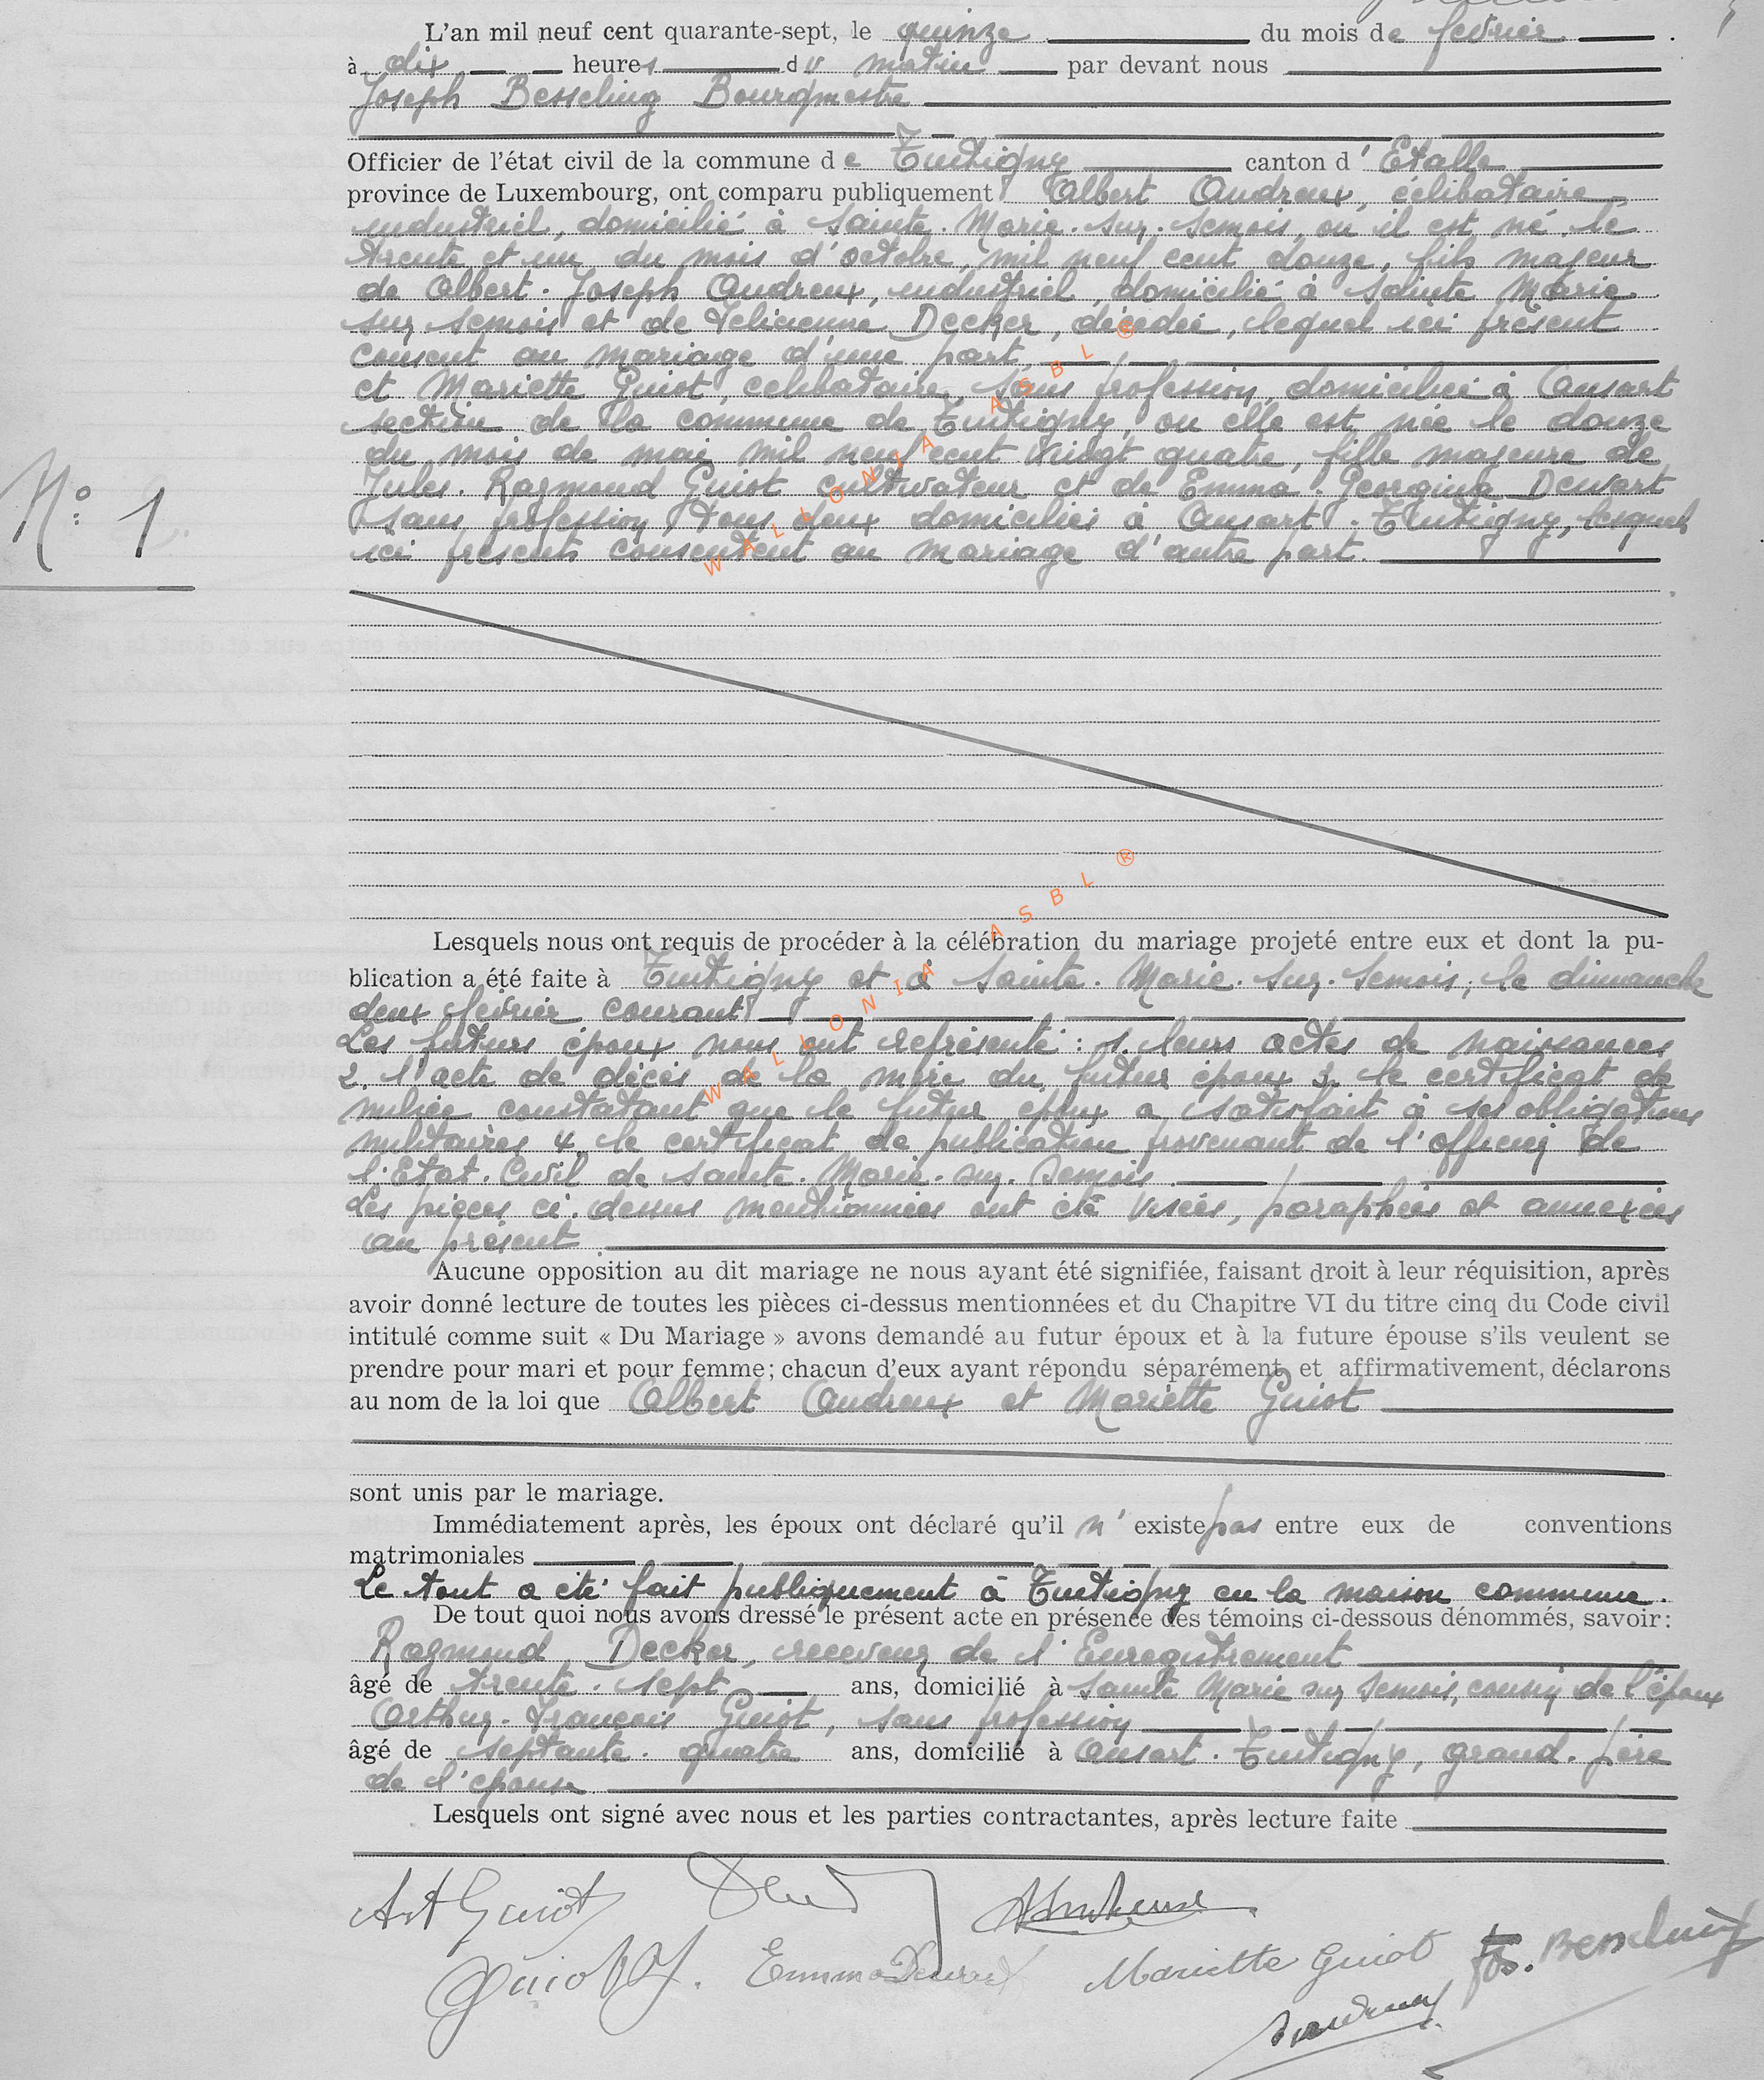 L'an mil neuf cent quarante-sept, le quinze du mois de février.
à dix heures du matin par devant nous
Joseph Besseling Bourgmestre
Officier de l'état civil de la commune de Tintigny canton d'Etalle
province de Luxembourg, ont comparu publiquement Albert Andreux, célibataire
industriel, domicilié à Sainte-Marie-sur-Semois, où il est né le
trente et un du mois d'octobre, mil neuf cent douze, fils majeur
de Albert-Joseph Andreux, industriel, domicilié à Sainte Marie
sur Semois et de Félicienne Decker, décédée, lequel ici présent
consent au mariage d'une part
et Mariette Guiot, célibataire, sans profession, domiciliée à Ansart
section de la commune de Tintigny, où elle est née le douze
du mois de mai mil neuf cent vingt quatre, fille majeure de
Jules-Raymond Guiot cultivateur et de Emma-Georgina
sans profession, tous deux domiciliés à Ansart-Tintigny, lesquels
ici présents consentent au mariage d'autre part.
N° 1
Lesquels nous ont requis de procéder à la célébration du mariage projeté entre eux et dont la pu-
blication a été faite à Tintigny et à Sainte-Marie-sur-Semois, le dimanche
deux février courant
Les futurs époux nous ont représenté : 1. leurs actes de naissances
2. l'acte de décès de la mère du futur époux 3. le certificat de
milice constatant que le futur époux a satisfait à ses obligations
militaires 4. le certificat de publication provenant de l'officier de
l'Etat-Civil de Sainte-Marie-sur-Semois.
Les pièces ci-dessus mentionnées ont été visées, paraphées et annexées
au présent.
Aucune opposition au dit mariage ne nous ayant été signifiée, faisant droit à leur réquisition, après
avoir donné lecture de toutes les pièces ci-dessus mentionnées et du Chapitre VI du titre cinq du Code civil
intitulé comme suit « Du Mariage » avons demandé au futur époux et à la future épouse s'ils veulent se
prendre pour mari et pour femme; chacun d'eux ayant répondu séparément et affirmativement, déclarons
au nom de la loi que Albert Andreux et Mariette Guiot
sont unis par le mariage.
Immédiatement après, les époux ont déclaré qu'il n'existe pas entre eux de conventions
matrimoniales
Le tout a été fait publiquement à Tintigny en la maison commune.
De tout quoi nous avons dressé le présent acte en présence des témoins ci-dessous dénommés, savoir:
Raymond Decker, receveur de l'Enregistrement
âgé de trente-sept ans, domicilié à Sainte Marie sur Semois, cousin de l'époux
Arthur-François Guiot, sans profession
âgé de septante-quatre ans, domicilié à Ansart-Tintigny, grand-père
de l'épouse.
Lesquels ont signé avec nous et les parties contractantes, après lecture faite
Art Guiot
Guiot Emma Mariette Guiot Jos. Besseling
WALLONIA ASBL ®
WALLONIA ASBL ®